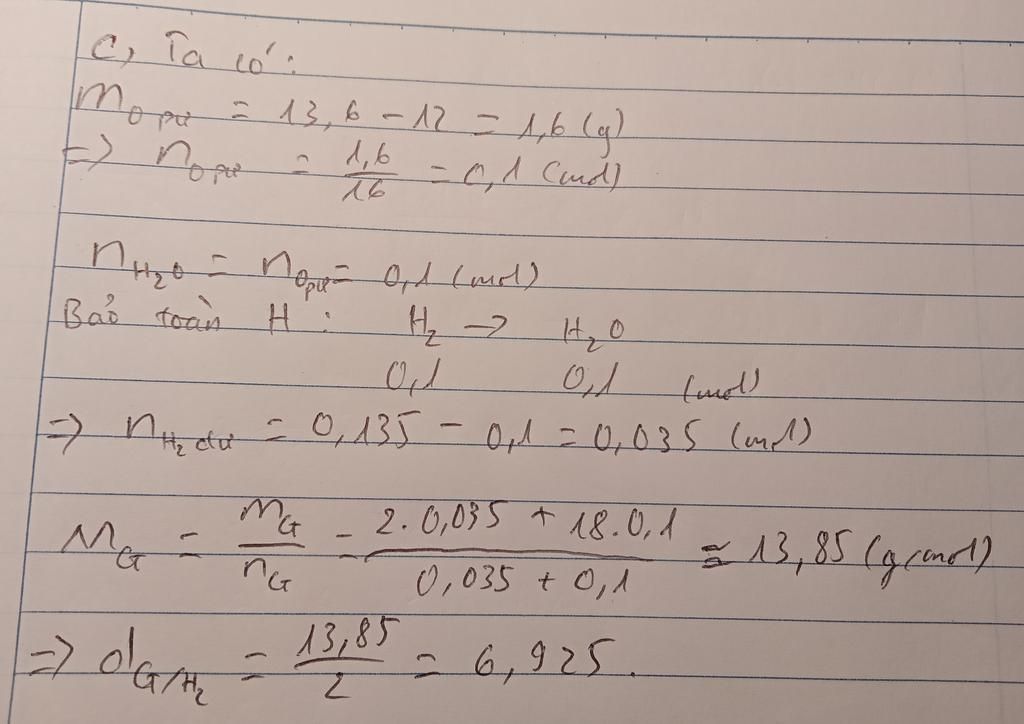 c, Ta có:
m O pư = 13,6 - 12 = 1,6 (g)
=> n O pư = 1,6/16 = 0,1 (mol)
n H₂O = n O pư = 0,1 (mol)
Bảo toàn H : H₂ → H₂O
0,1 0,1 (mol)
=> n H₂ dư = 0,135 - 0,1 = 0,035 (mol)
M G = m G / n G = (2.0,035 + 18.0,1) / (0,035 + 0,1) ≈ 13,85 (g/mol)
=> d G/H₂ = 13,85/2 = 6,925.